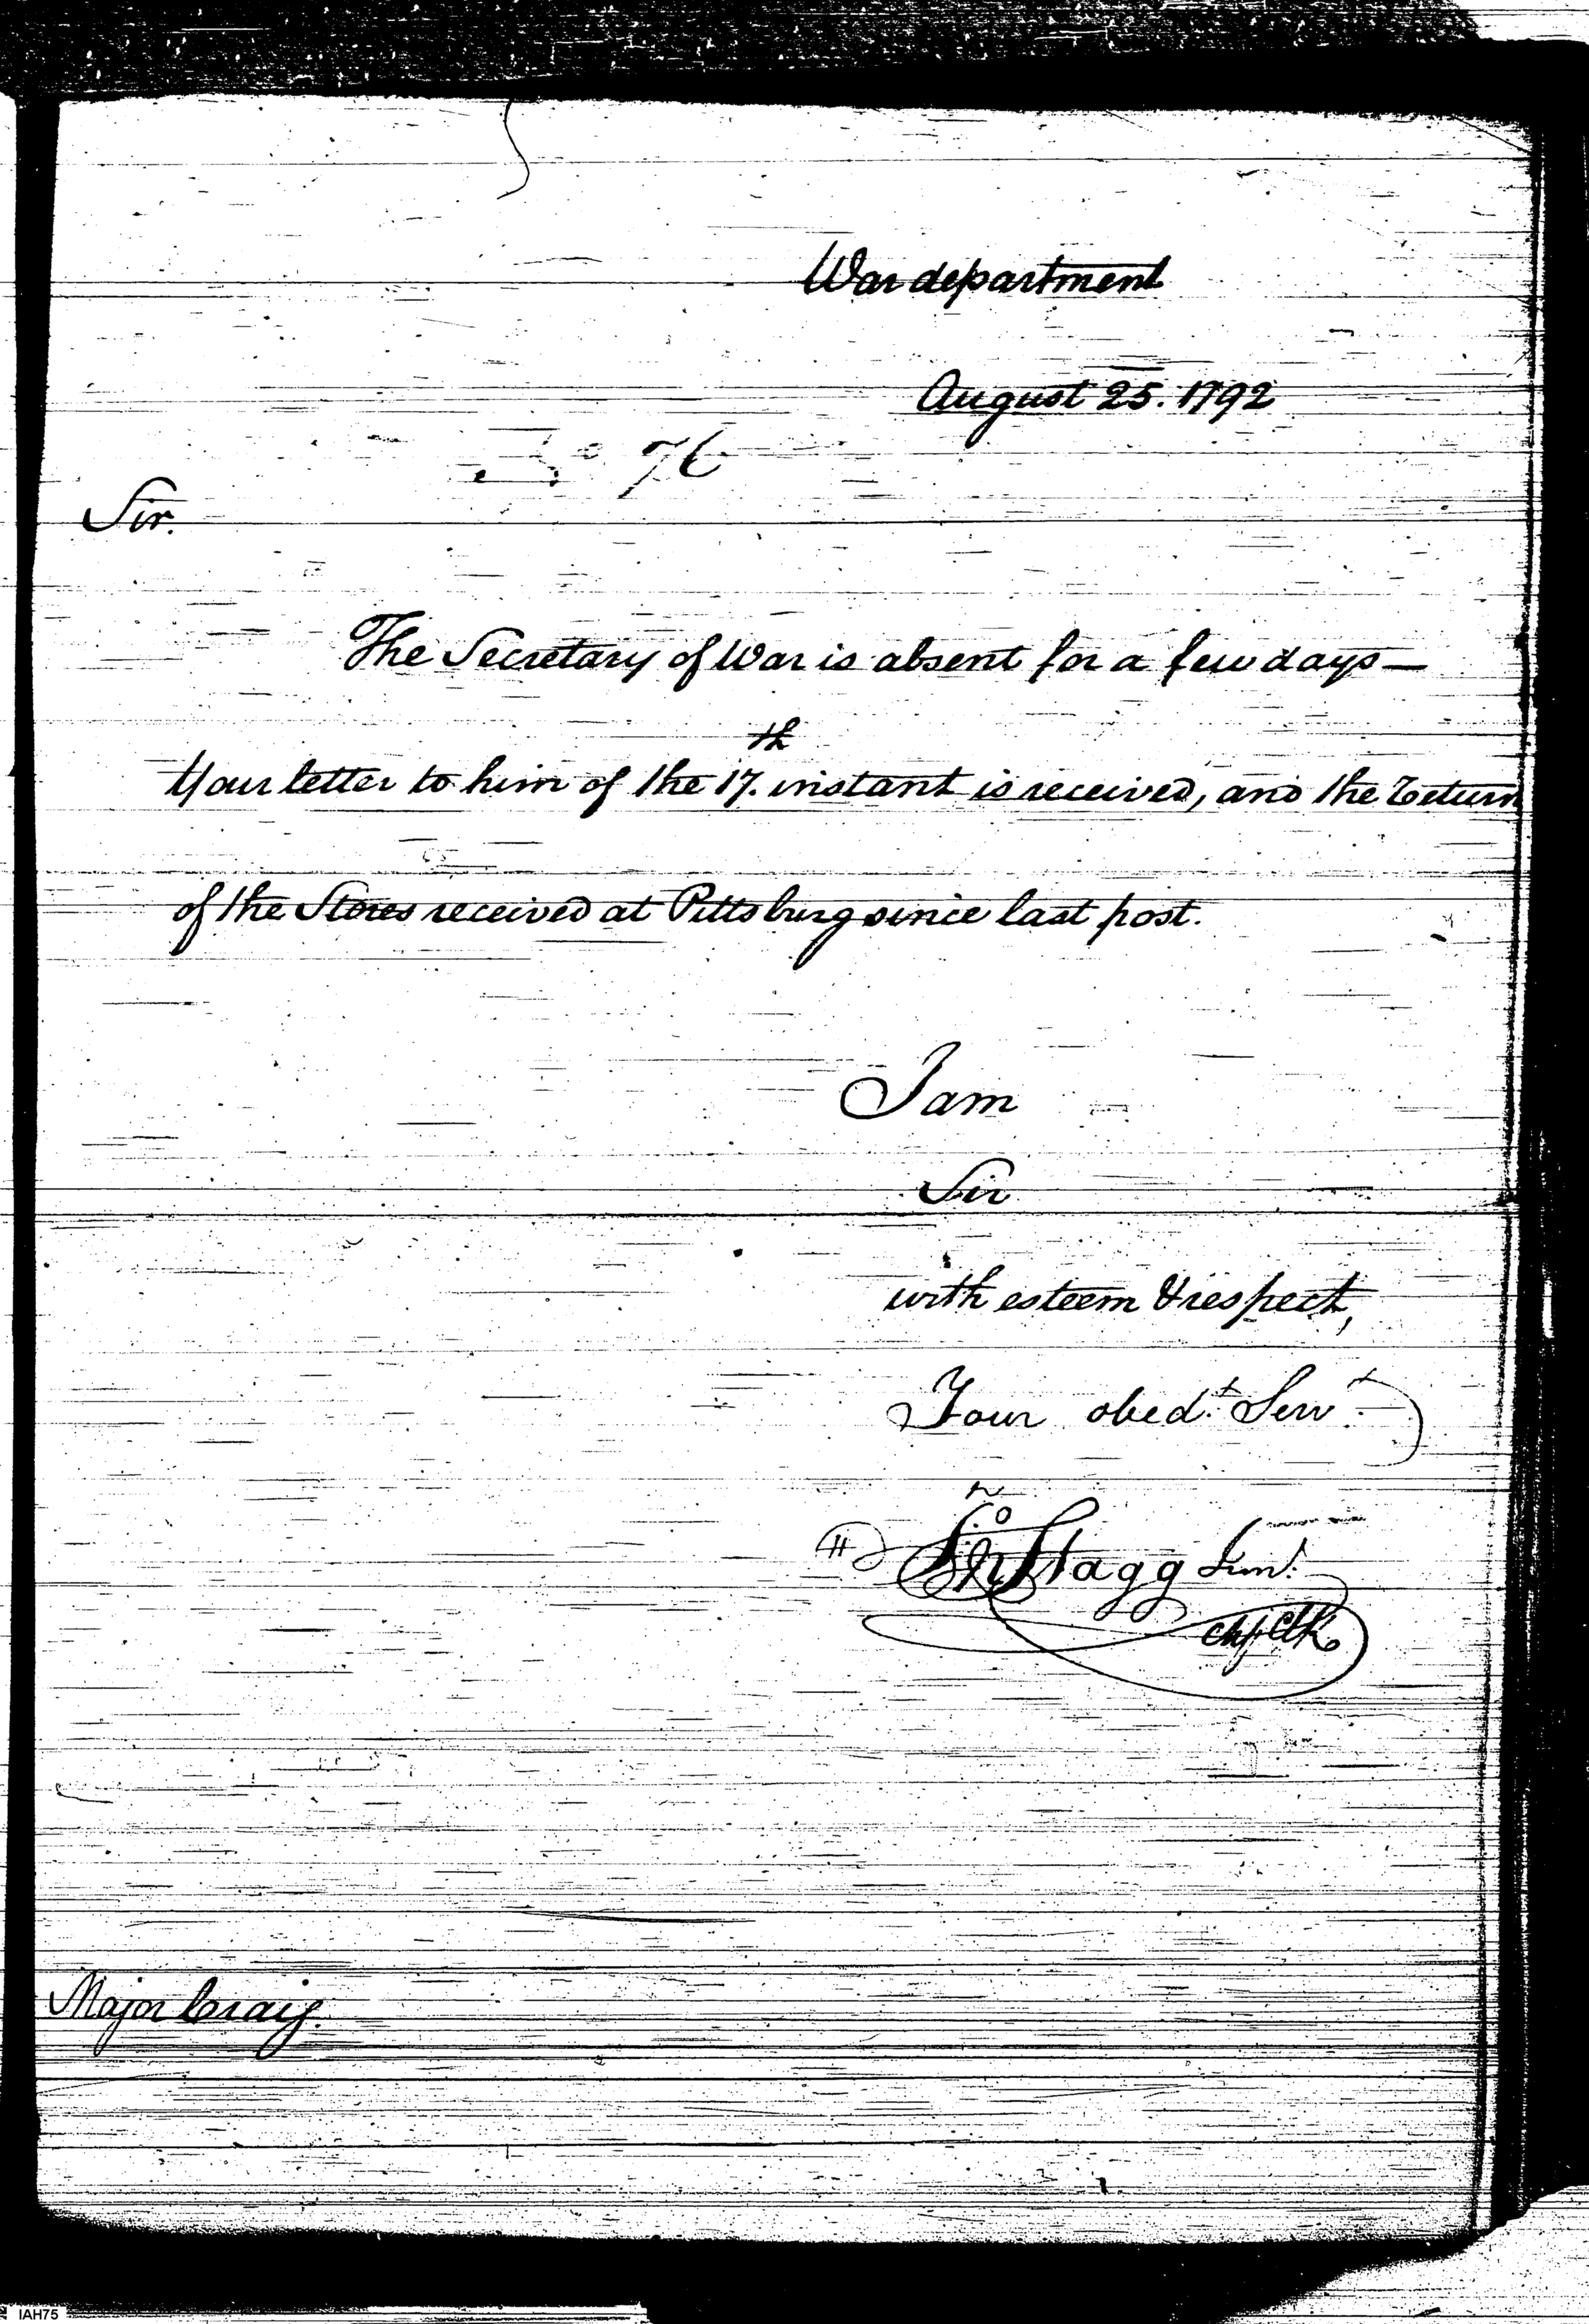 War department
August 25. 1792
No 76
Sir.
The Secretary of War is absent for a few days—
Your letter to him of the 17.th instant is received, and the Return
of the Stores received at Pittsburg since last post.
I am
Sir
with esteem & respect,
Your obed.t Serv.t
Jno Stagg Jun.r
Chf Clk
Major Craig.
IAH75